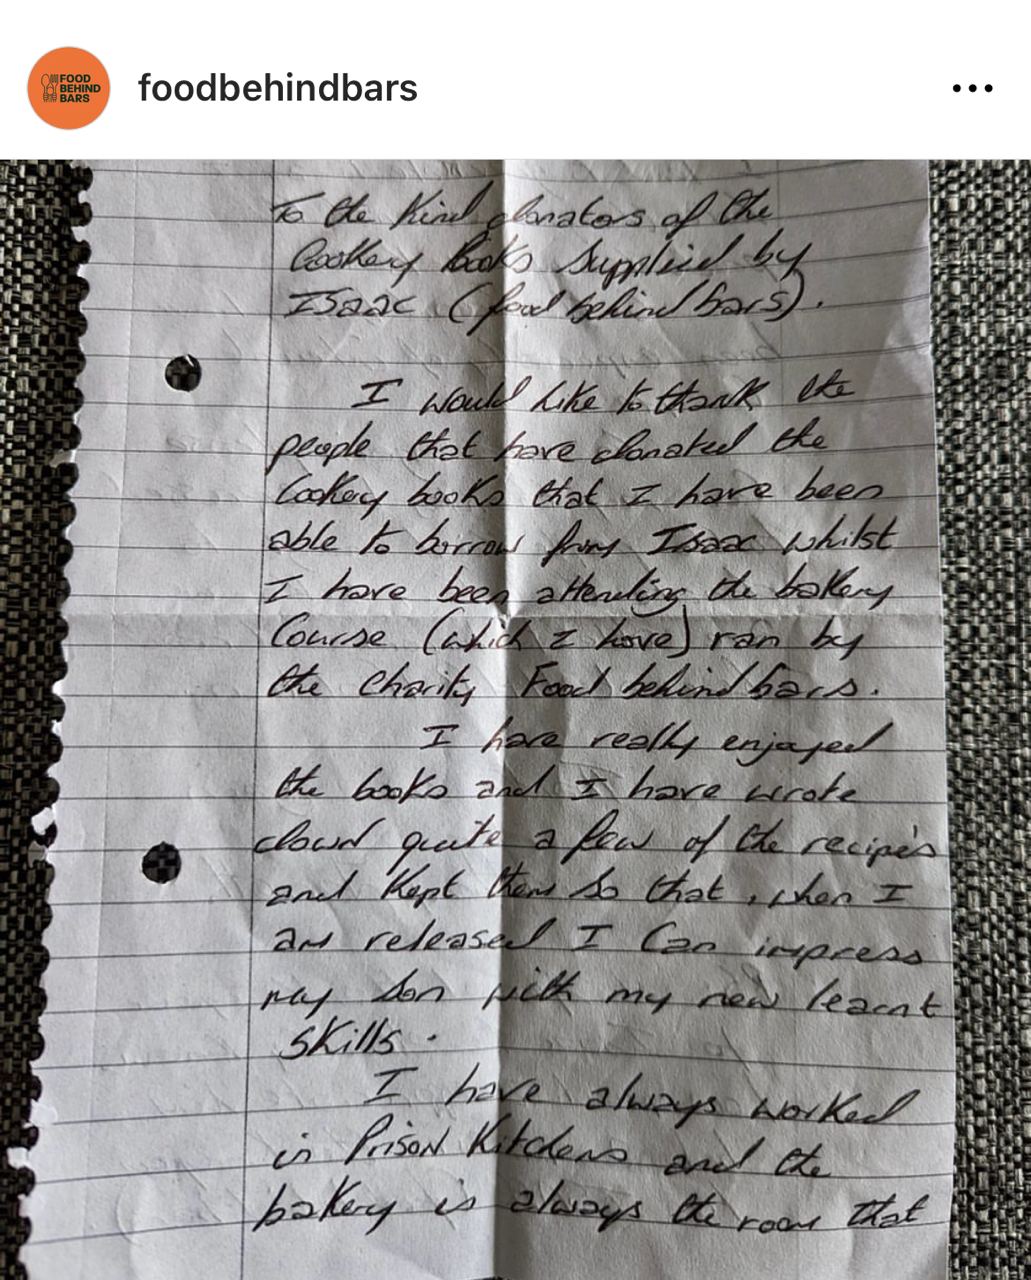 FOOD
BEHIND
BARS
foodbehindbars
To the Kind donators of the
Cookery books supplied by
Isaac (food behind bars).
I would like to thank the
people that have donated the
Cookery books that I have been
able to borrow from Isaac whilst
I have been attending the bakery
Course (which I love) ran by
the Charity Food behind bars.
I have really enjoyed
the books and I have wrote
down quite a few of the recipe's
and Kept them so that, when I
am released I Can impress
my son with my new learnt
skills.
I have always worked
in Prison Kitchens and the
bakery is always the room that